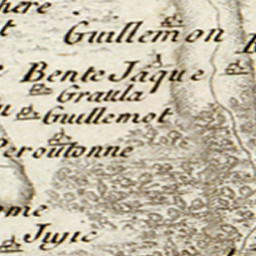 here
t
Guillemon
Bente Jaque
Graula
Guillemot
Peroutonne
me
Juyic